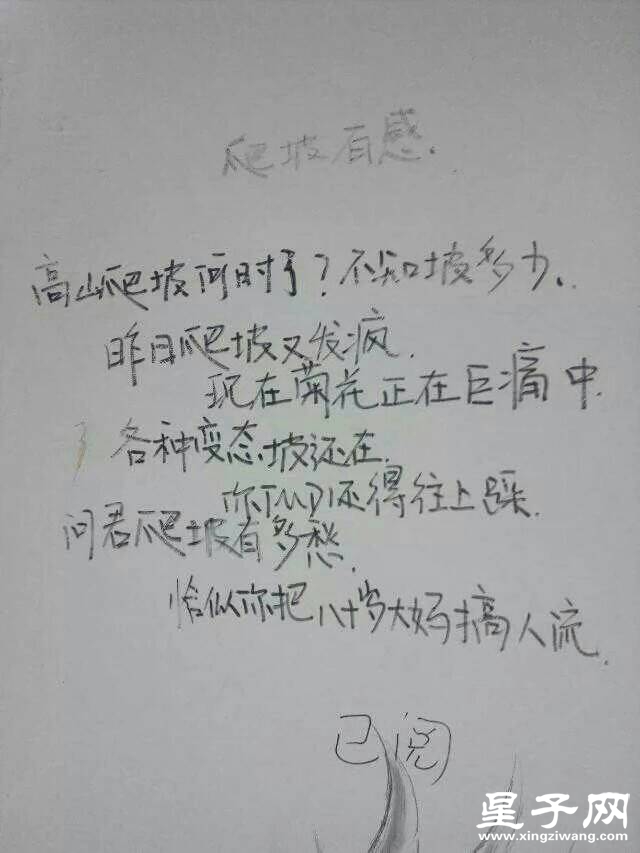 爬坡有感.
高山爬坡何时了？不知坡多少.
昨日爬坡又发疯.
现在菊花正在巨痛中.
各种变态坡还在.
你TMD还得往上踩.
问君爬坡有多愁.
恰似你把八十岁大妈搞人流.
已阅
星子网
www.xingziwang.com